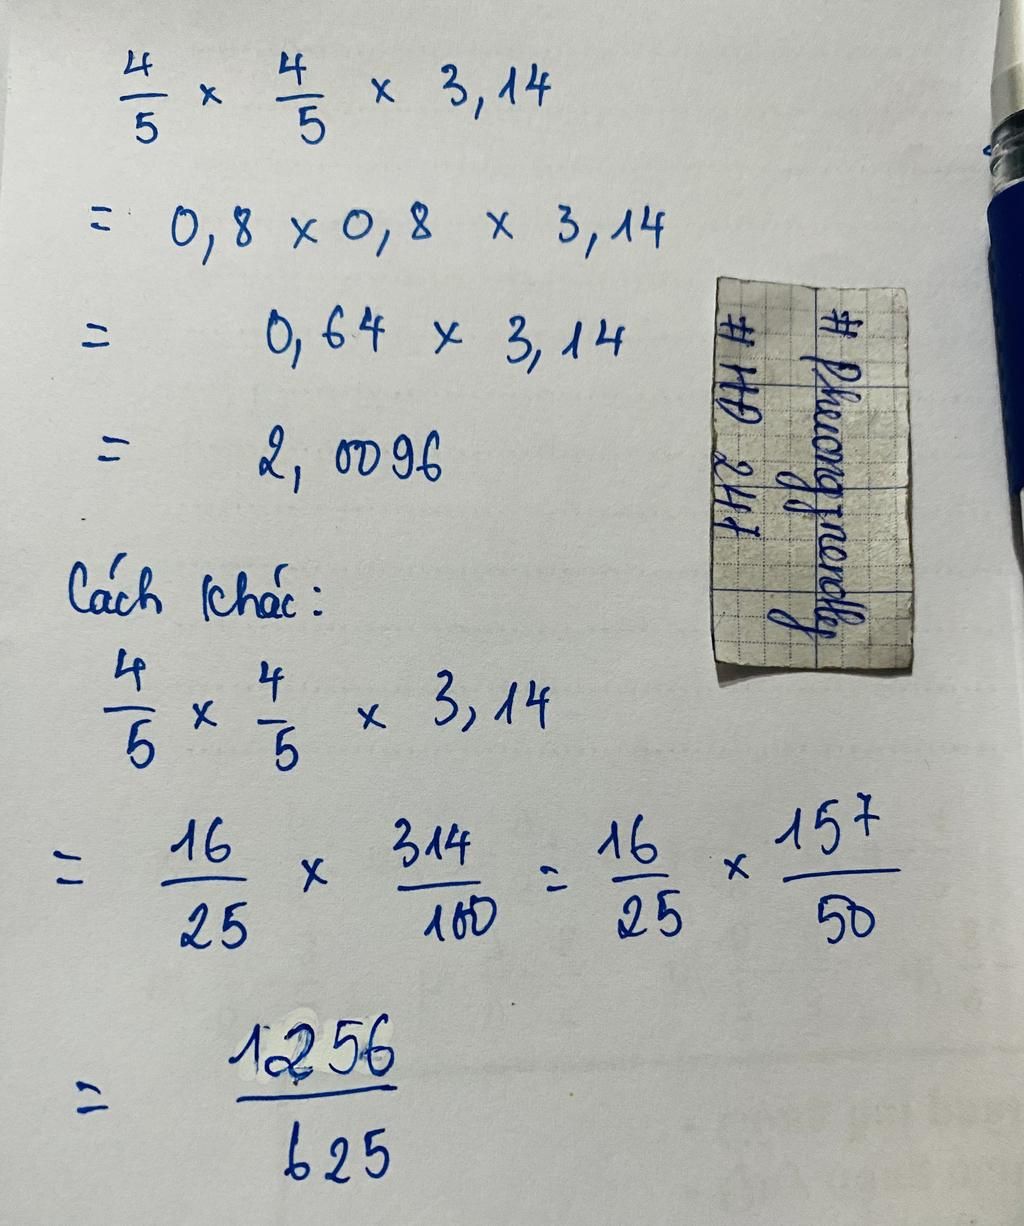 4/5 × 4/5 × 3,14
= 0,8 × 0,8 × 3,14
= 0,64 × 3,14
= 2,0096
Cách khác:
4/5 × 4/5 × 3,14
= 16/25 × 314/100 = 16/25 × 157/50
= 1256/625
# HP 247